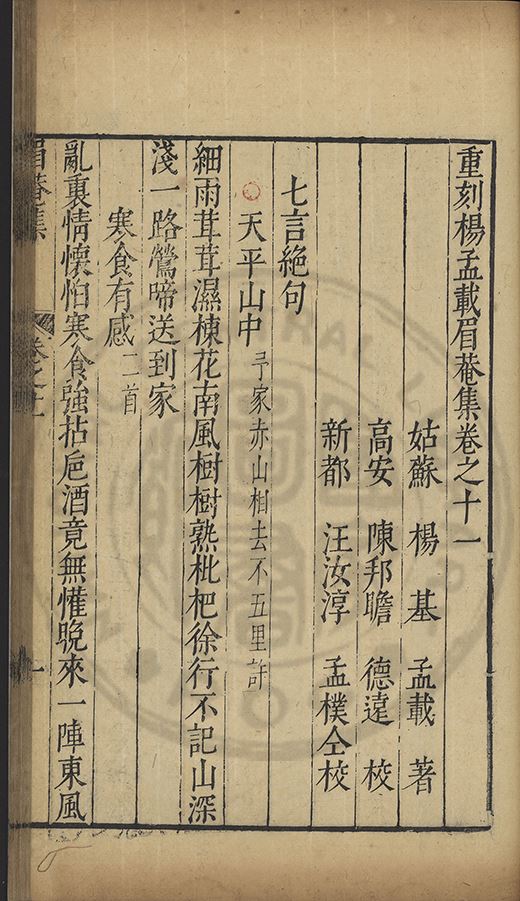 重刻楊孟載眉菴集卷之十一
姑蘇 楊基 孟載 著
高安 陳邦瞻 德遠 校
新都 汪汝淳 孟樸仝校
七言絕句
天平山中 予家赤山相去不五里許
細雨茸茸濕楝花南風樹樹熟枇杷徐行不記山深
淺一路鶯啼送到家
寒食有感 二首
亂裏情懷怕寒食強拈卮酒竟無懽晩來一陣東風
眉菴集 卷之十一 一